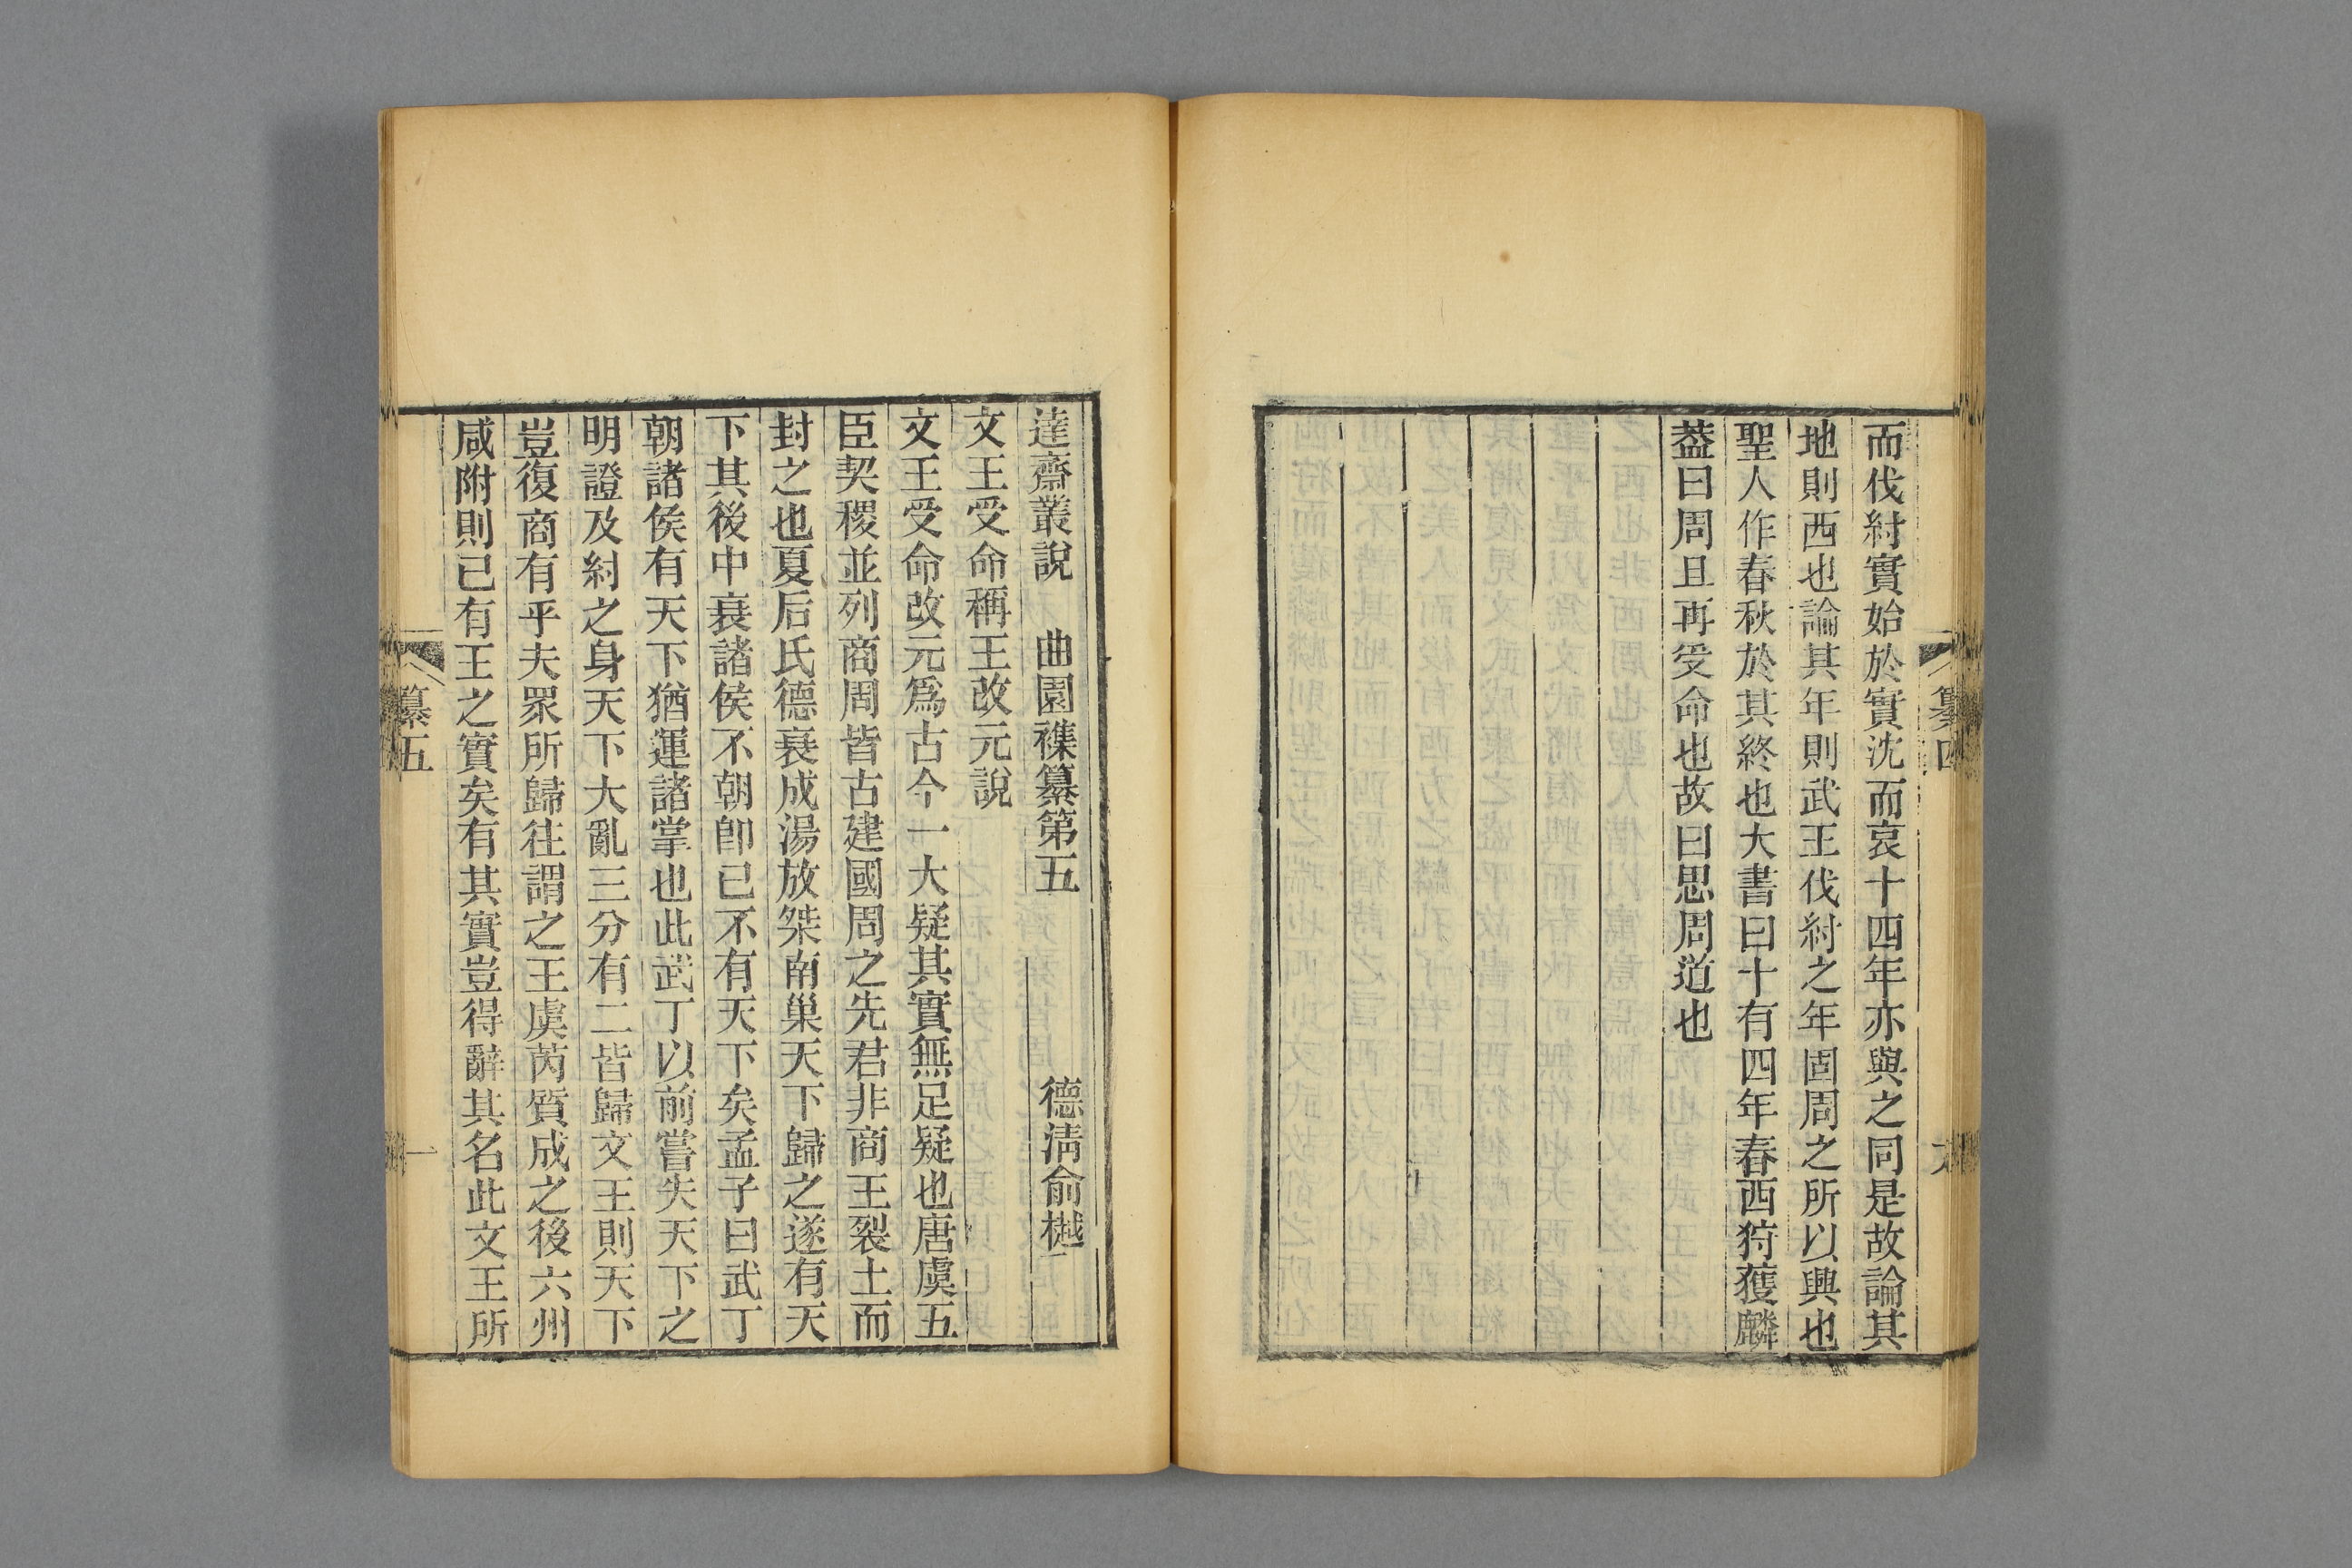 而伐紂實始於實沈而哀十四年亦與之同是故論其
地則西也論其年則武王伐紂之年固周之所以興也
聖人作春秋於其終也大書曰十有四年春西狩獲麟
葢曰周且再受命也故曰思周道也
纂四
六
達齋叢說　曲園襍纂第五　德淸俞樾
文王受命稱王改元說
文王受命改元爲古今一大疑其實無足疑也唐虞五
臣契稷並列商周皆古建國周之先君非商王裂土而
封之也夏后氏德衰成湯放桀南巢天下歸之遂有天
下其後中衰諸侯不朝卽已不有天下矣孟子曰武丁
朝諸侯有天下猶運諸掌也此武丁以前嘗失天下之
明證及紂之身天下大亂三分有二皆歸文王則天下
豈復商有乎夫眾所歸往謂之王虞芮質成之後六州
咸附則已有王之實矣有其實豈得辭其名此文王所
纂五
一